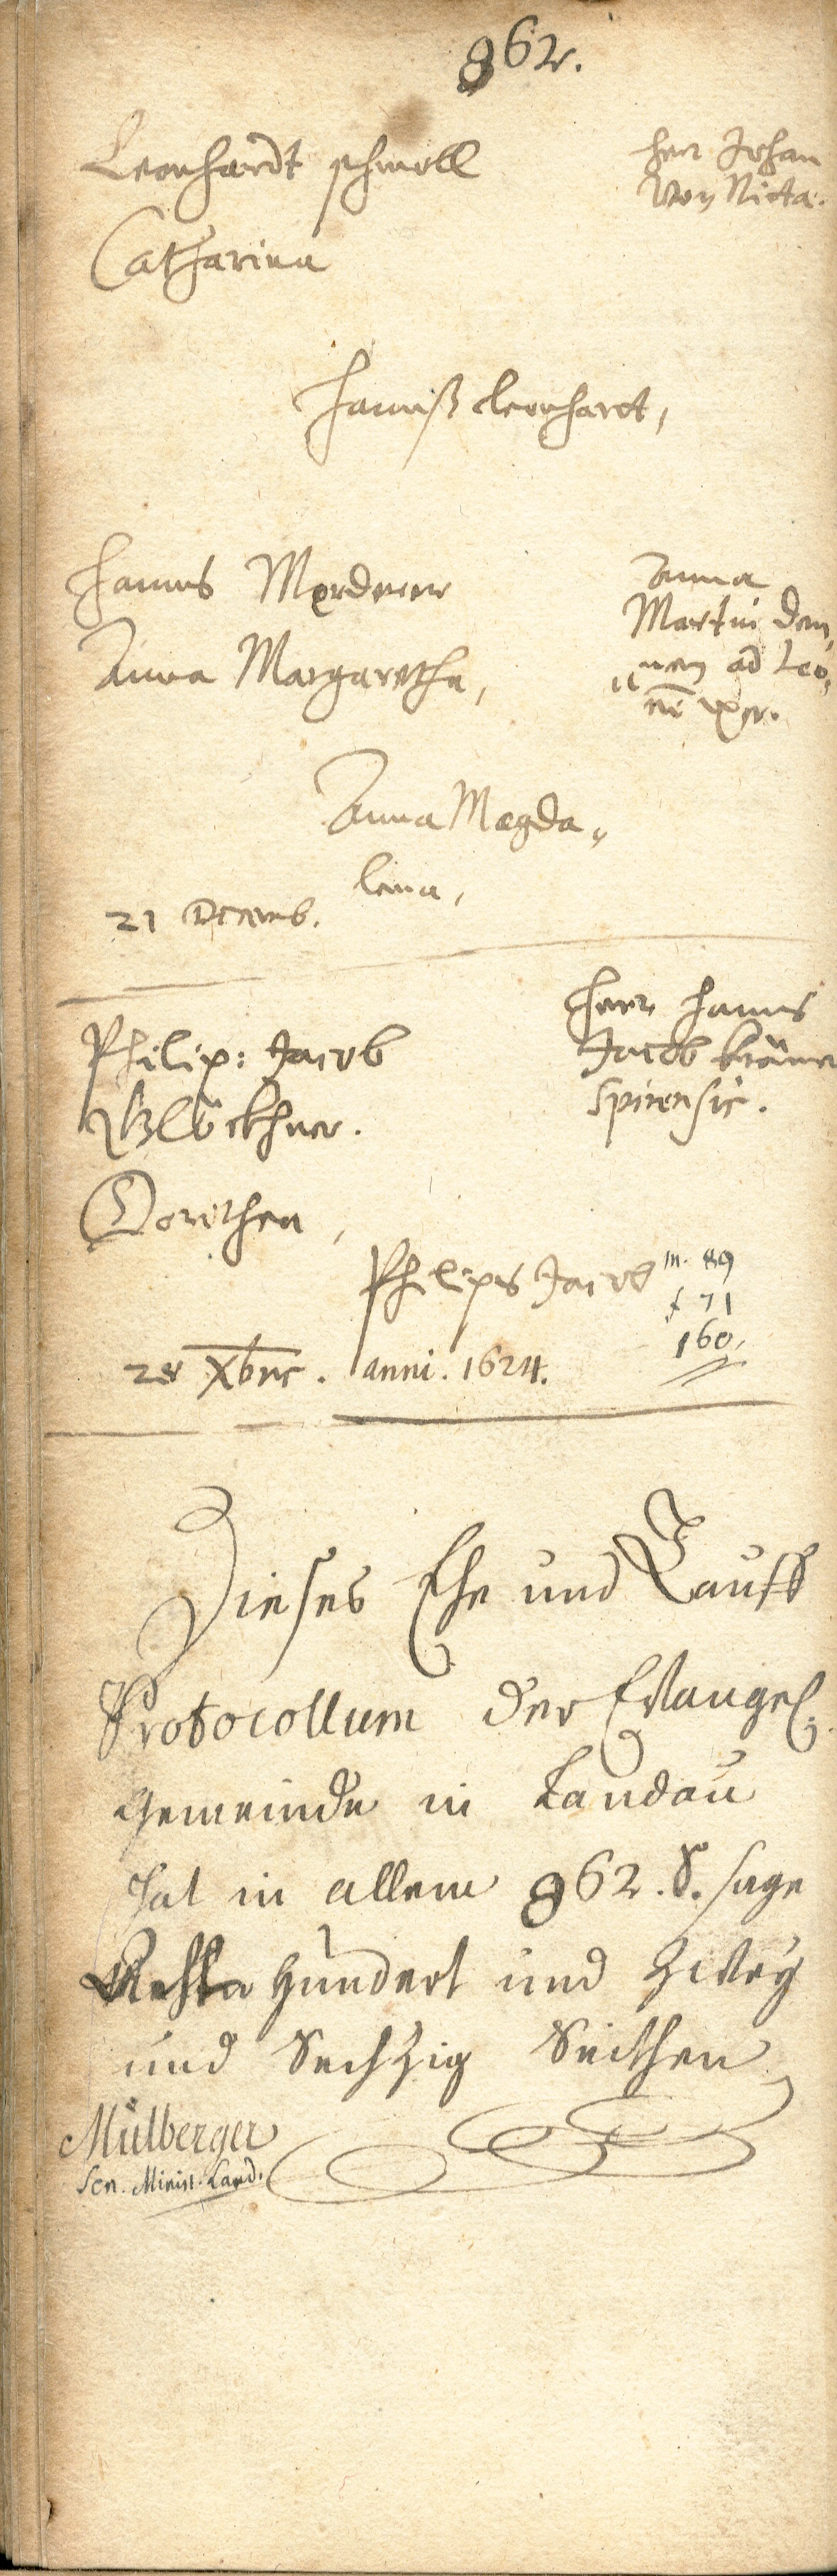 862.
Leonhardt schmoll
Catharina
herr Johan
Von Nida.
Hannß Leonhardt,
Hanns Morderer
Anna Margaretha,
Anna
Martin Den„
nen ad Leo„
nē uxor.
Anna Magda„
lena,
21 Decemb.
Philip: Jacob
Glöckhner.
Dorothea,
Herr Hanns
Jacob Krämer
Spirensis.
Philips Jacob
m. 89
f 71
160.
28 Xbris. anni. 1624.
Dieses Ehe und Tauff
Protocollum der Evangel.
Gemeinde in Landau
hat in allem 862. S. sage
Acht hundert und Zwey
und Sechzig Seithen
Mülberger
Sen. Minist. Land.